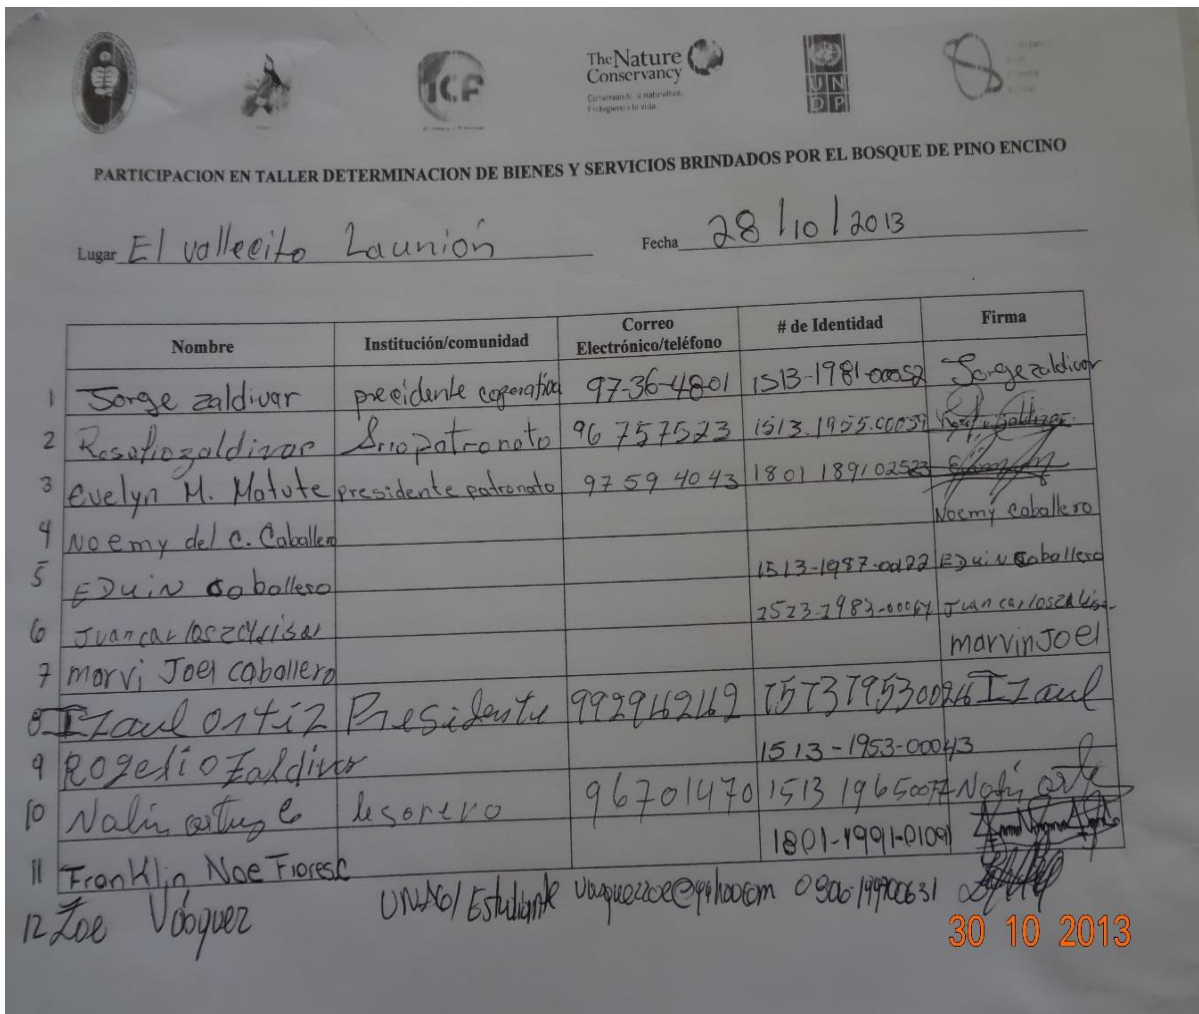 ICF
The Nature
Conservancy
Conservando la naturaleza.
Protegiendo la vida.
UN
DP
PARTICIPACION EN TALLER DETERMINACION DE BIENES Y SERVICIOS BRINDADOS POR EL BOSQUE DE PINO ENCINO
Lugar El vallecito Launión Fecha 28/10/2013
Nombre Institución/comunidad Correo Electrónico/teléfono # de Identidad Firma
1 Jorge zaldivar precidente coperativa 97-36-4801 1513-1981-00052 Jorge zaldivar
2 Rosaliozaldivar Srio patronato 96 757523 1513.1955.00039
3 Evelyn M. Matute presidente patronato 97 59 40 43 1801 1891 02523
4 Noemy del C. Caballero Noemy Caballero
5 EDuiN Caballero 1513-1987-00122 EDuiN Caballero
6 Juan carlos zaldivar Juan carlos
7 marvi Joel caballero marvin Joel
8 Izaul ortiz Presidente 99296262 Izaul
9 Rogelio Zaldivar 1513-1953-00043
10 Nalin tesorero 96701470 1513 1965 Nalin
11 Franklin Noe Flores C 1801-1991-01091
12 Zoe Vásquez Estudiante
30 10 2013